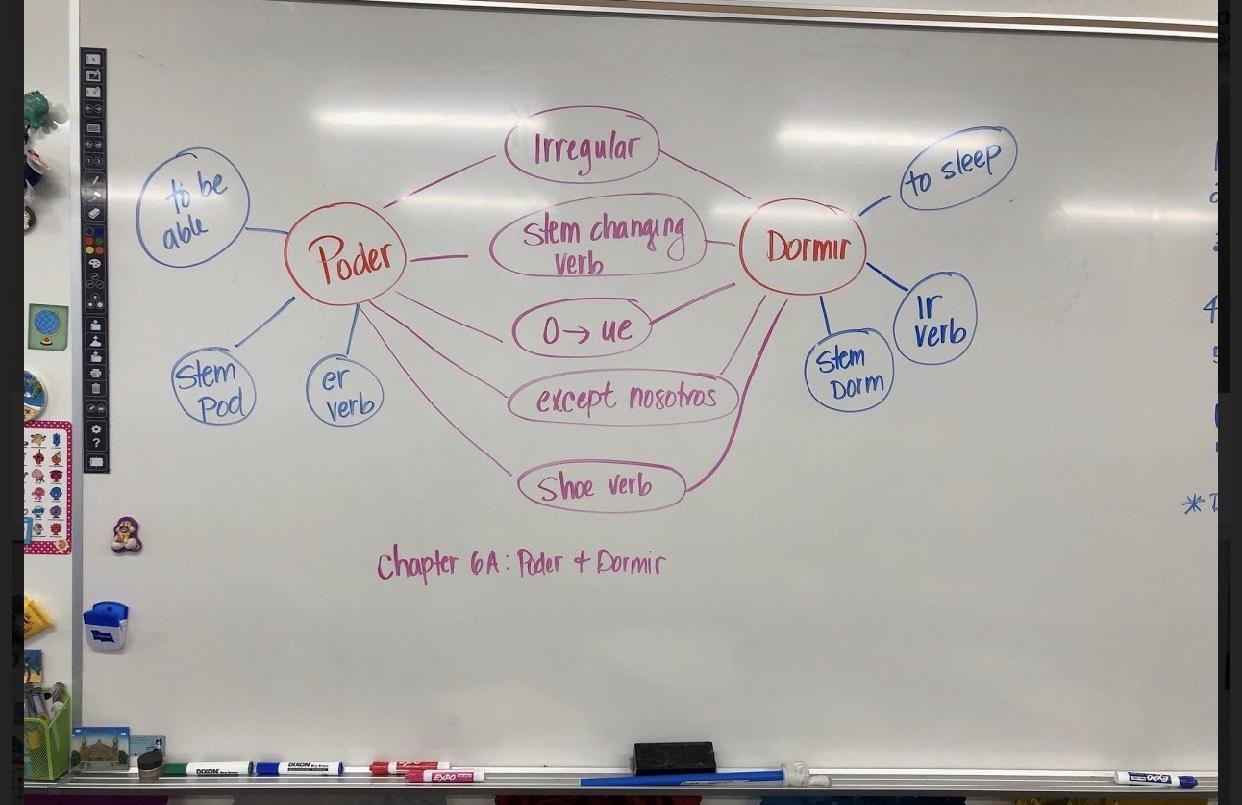 Irregular
to be
able
to sleep
Poder
Stem changing
verb
Dormir
O→ ue
Ir
verb
Stem
Pod
er
verb
Stem
Dorm
except nosotros
Shoe verb
Chapter 6A: Poder + Dormir
DIXON
DIXON
EXPO
EXPO